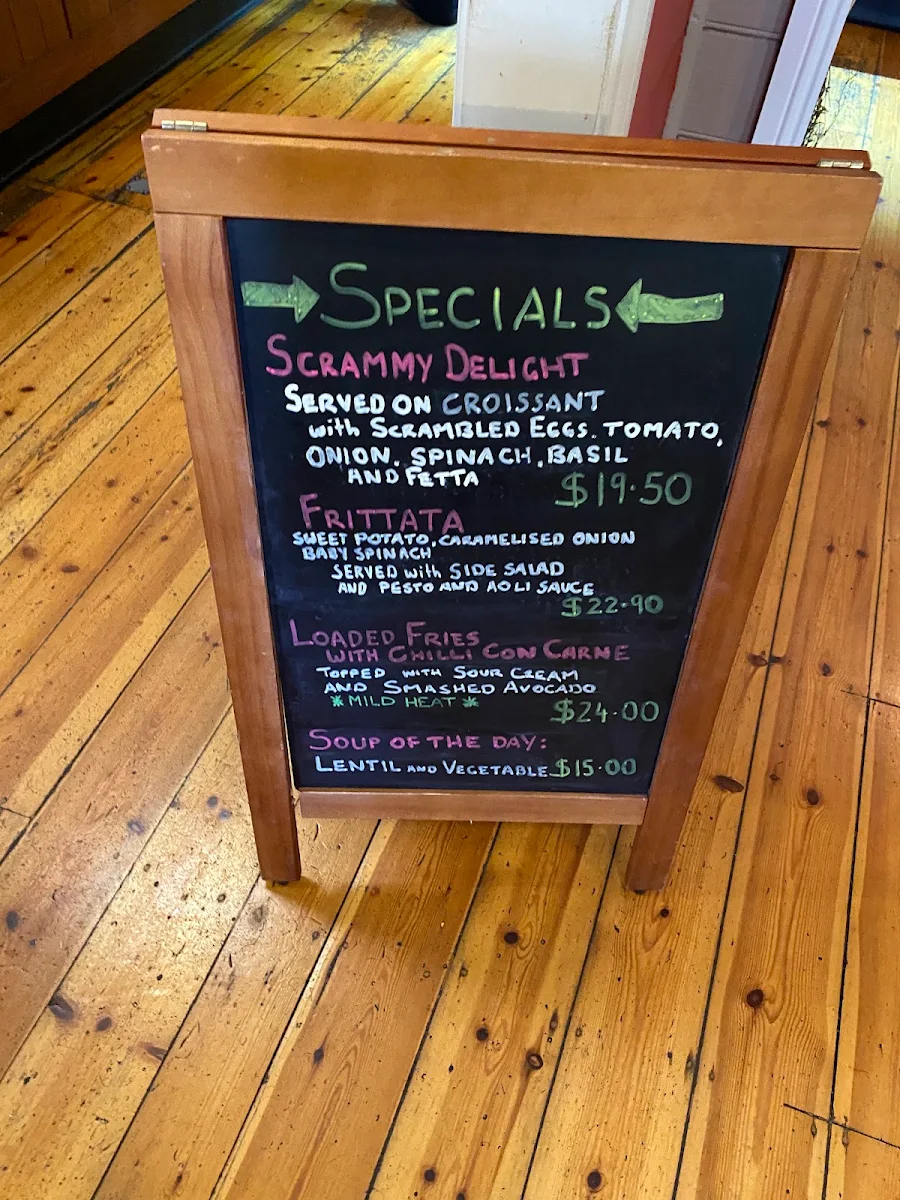 SPECIALS
SCRAMMY DELIGHT
SERVED ON CROISSANT
with SCRAMBLED EGGS. TOMATO,
ONION, SPINACH, BASIL
AND FETTA
$19.50
FRITTATA
SWEET POTATO, CARAMELISED ONION
BABY SPINACH
SERVED with SIDE SALAD
AND PESTO AND AOLI SAUCE
$22.90
LOADED FRIES
WITH CHILLI CON CARNE
TOPPED WITH SOUR CREAM
AND SMASHED AVOCADO
*MILD HEAT*
$24.00
SOUP OF THE DAY:
LENTIL AND VEGETABLE $15.00